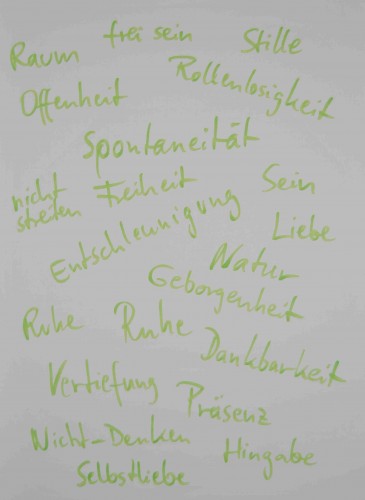 frei sein
Stille
Raum
Rollenlosigkeit
Offenheit
Spontaneität
nicht
streiten
Freiheit
Sein
Entschleunigung
Liebe
Natur
Geborgenheit
Ruhe
Ruhe
Dankbarkeit
Vertiefung
Präsenz
Nicht-Denken
Hingabe
Selbstliebe